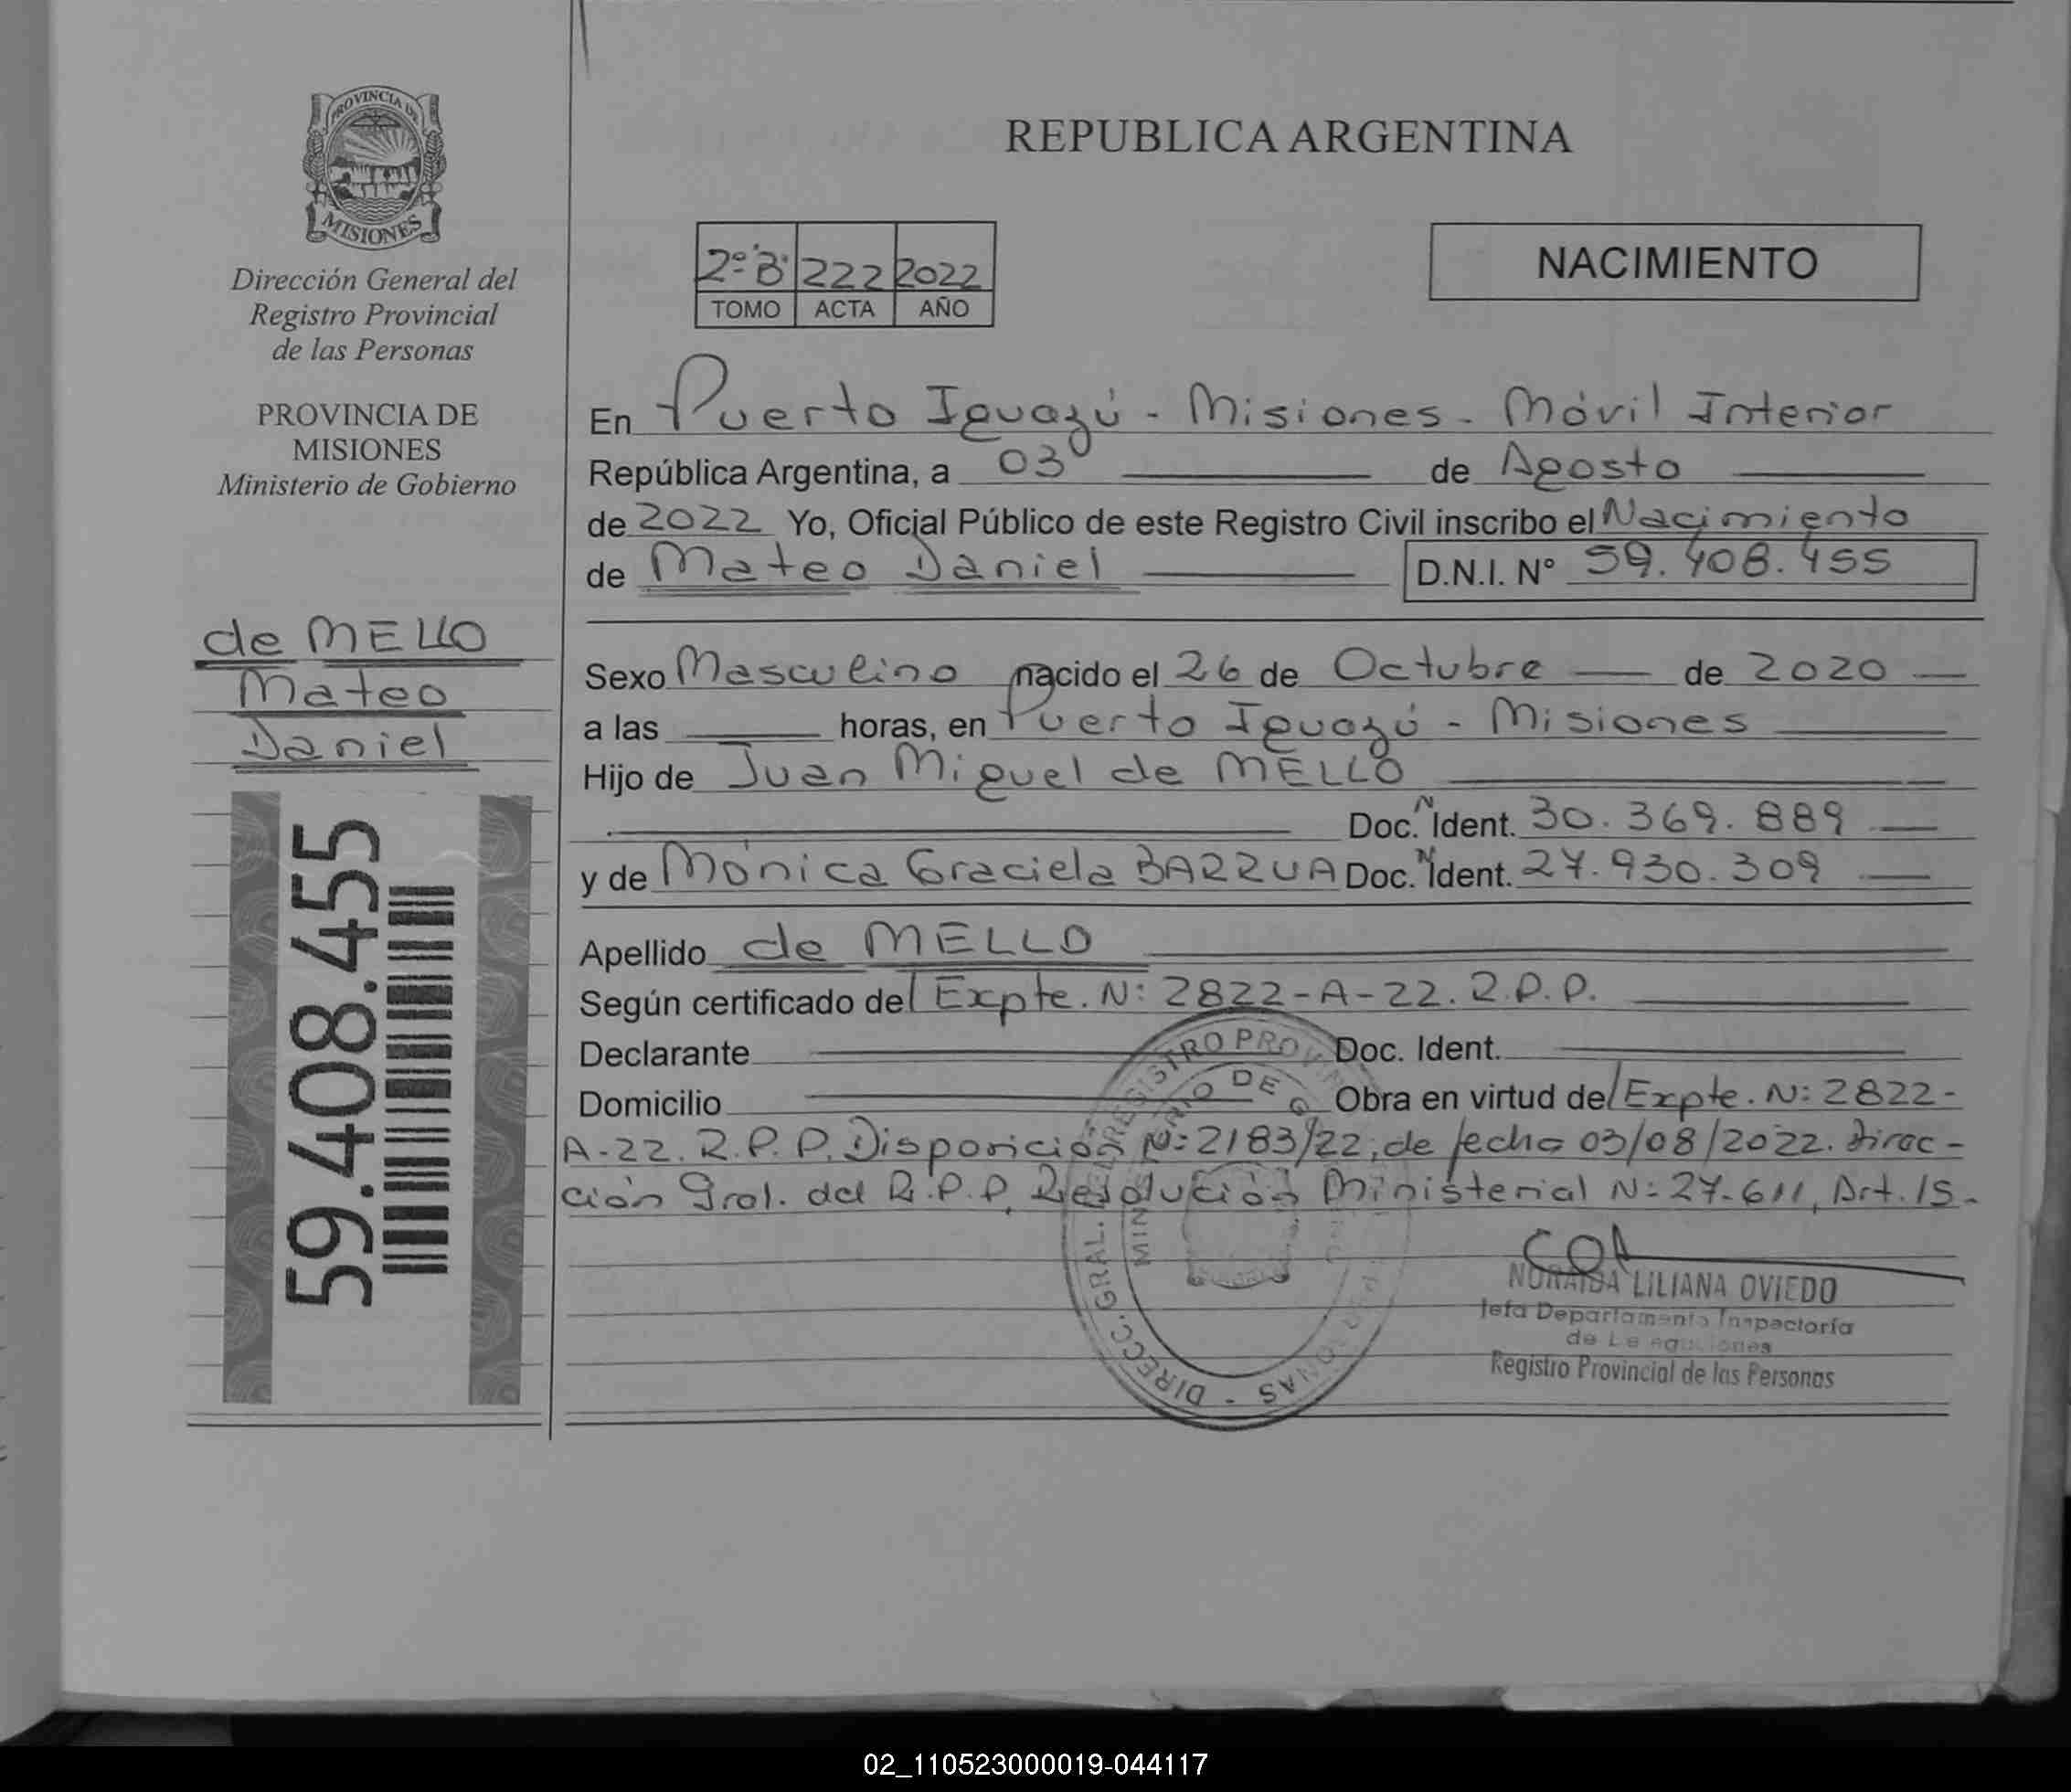 PROVINCIA DE
MISIONES
Dirección General del
Registro Provincial
de las Personas
PROVINCIA DE
MISIONES
Ministerio de Gobierno
de MELLO
Mateo
Daniel
59.408.455
REPUBLICA ARGENTINA
2º B 222 2022
TOMO ACTA AÑO
NACIMIENTO
En Puerto Iguazú - Misiones - Móvil Interior
República Argentina, a 03 de Agosto
de 2022 Yo, Oficial Público de este Registro Civil inscribo el Nacimiento
de Mateo Daniel D.N.I. Nº 59.408.455
Sexo Masculino nacido el 26 de Octubre de 2020
a las horas, en Puerto Iguazú - Misiones
Hijo de Juan Miguel de MELLO
Doc. N Ident. 30.369.889
y de Mónica Graciela BARRUA Doc. N Ident. 27.930.309
Apellido de MELLO
Según certificado del Expte. N: 2822-A-22. R.P.P.
Declarante Doc. Ident.
Domicilio Obra en virtud del Expte. N: 2822-
A-22. R.P.P. Disposición N: 2183/22, de fecha 03/08/2022. Direc-
ción Gral. del R.P.P, Resolución Ministerial N: 27.611, Art. 15.
NORAIDA LILIANA OVIEDO
Jefa Departamento Inspectoría
de
Registro Provincial de las Personas
DIRECC. GRAL. REGISTRO PROV
02_110523000019-044117